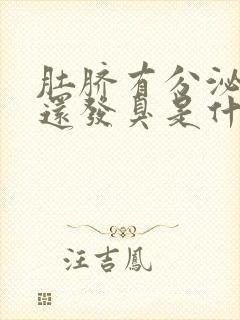 肚脐有分泌
還發臭是什
汪吉鳳